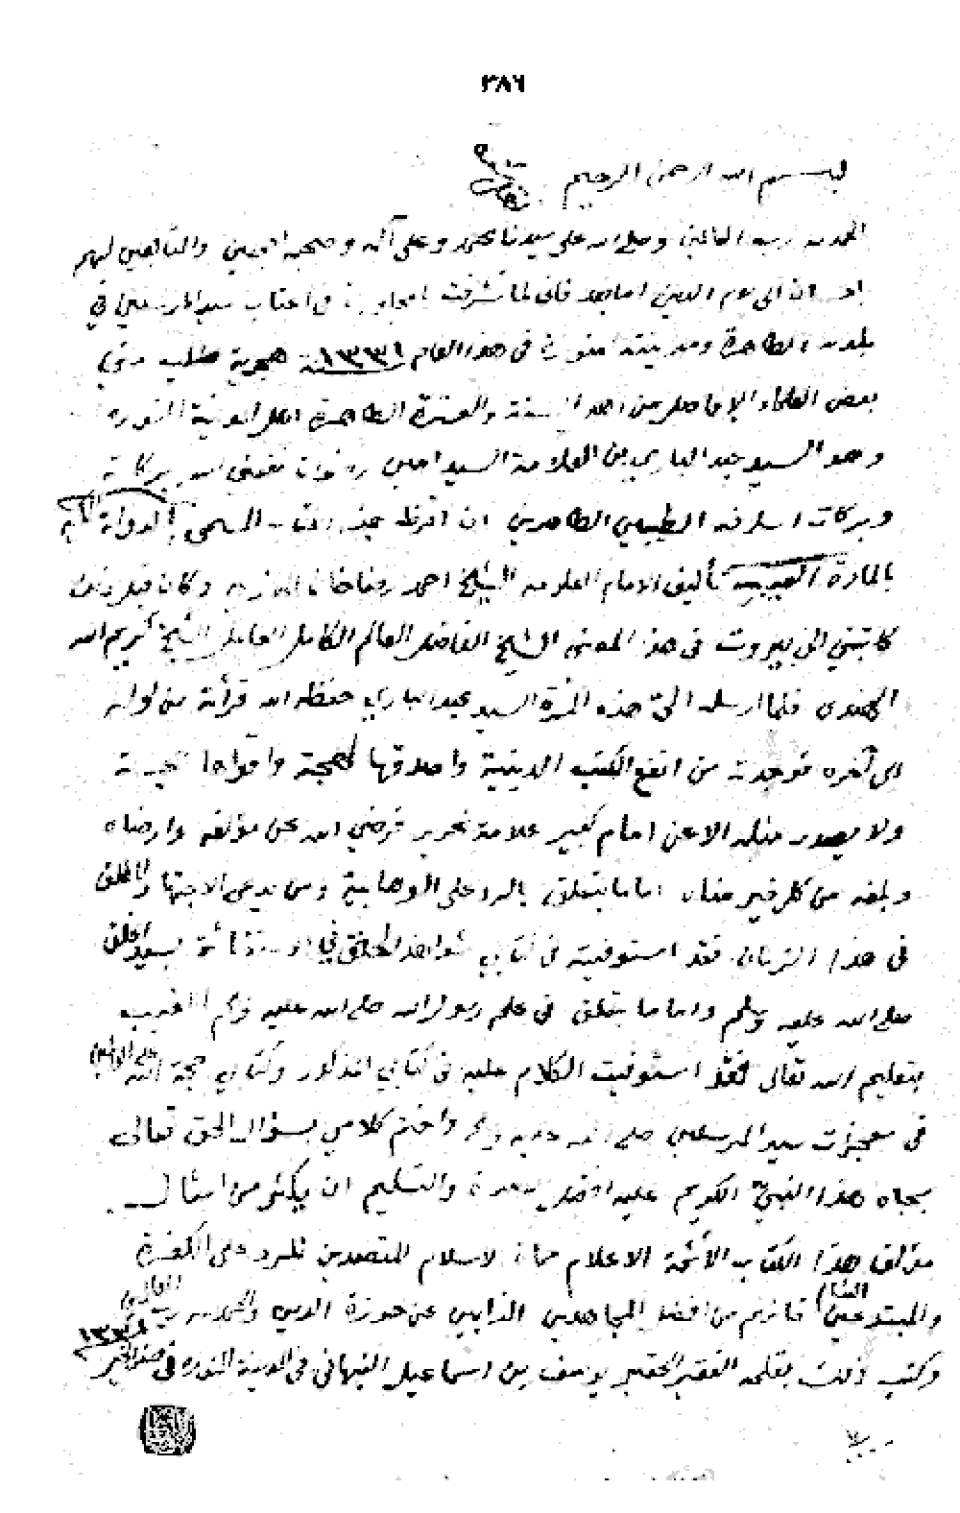 ٣٨٦
بسم الله الرحمن الرحيم
الحمد لله رب العالمين وصلى الله على سيدنا محمد وعلى آله وصحبه اجمعين والتابعين لهم
باحسان الى يوم الدين اما بعد فاني لما تشرفت بمجاورة اعتاب سيد المرسلين في
بلدته الطاهرة ومدينته المنورة في هذا العام ١٣٣١ سنة هجرية طلب مني
بعض العلماء الافاضل من اهل السنة والعترة الطاهرة اهل المدينة المنورة
وهو السيد عبد الباري بن العلامة السيد امين رضوان نفعني الله ببركاته
وبركات اسلافه الطيبين الطاهرين ان اقرظ هذا الكتاب المسمى بالدولة المكية
بالمادة الغيبية تأليف الامام العلامة الشيخ احمد رضا خان الهندي وكان قبل ذلك
كاتبني الى بيروت في هذا الشيخ الفاضل العالم الكامل العامل الشيخ كريم الله
الهندي فلما ارسله الي هذه المرة السيد عبد الباري حفظه الله قرأته من اوله
الى آخره فوجدته من انفع الكتب الدينية واصدقها لهجة واقواها حجة
ولا يصدر مثله الا عن امام كبير علامة نحرير فرضي الله عن مؤلفه وارضاه
وبلغه من كل خير مناه اما ما يتعلق بالرد على الوهابية ومن يدعي الاجتهاد المطلق
في هذا الزمان فقد استوفيته في كتابي شواهد الحق في الاستغاثة بسيد الخلق
صلى الله عليه وسلم واما ما يتعلق في علم رسول الله صلى الله عليه وسلم الغيب
بتعليم الله تعالى فقد استوفيت الكلام عليه في كتابي المذكور وكتابي حجة الله على العالمين
في معجزات سيد المرسلين صلى الله عليه وسلم واختم كلامي بسؤال الحق تعالى
بجاه هذا النبي الكريم عليه افضل الصلاة والتسليم ان يكثر من امثال
مؤلف هذا الكتاب الأئمة الاعلام حماة الاسلام المتصدين للرد على الكفرة
والمبتدعين الضالين فانهم من افضل المجاهدين الذابين عن حوزة الدين والحمد لله رب العالمين
وكتب ذلك بقلمه الفقير الحقير يوسف بن اسماعيل النبهاني في المدينة المنورة في صفر الخير ١٣٣١